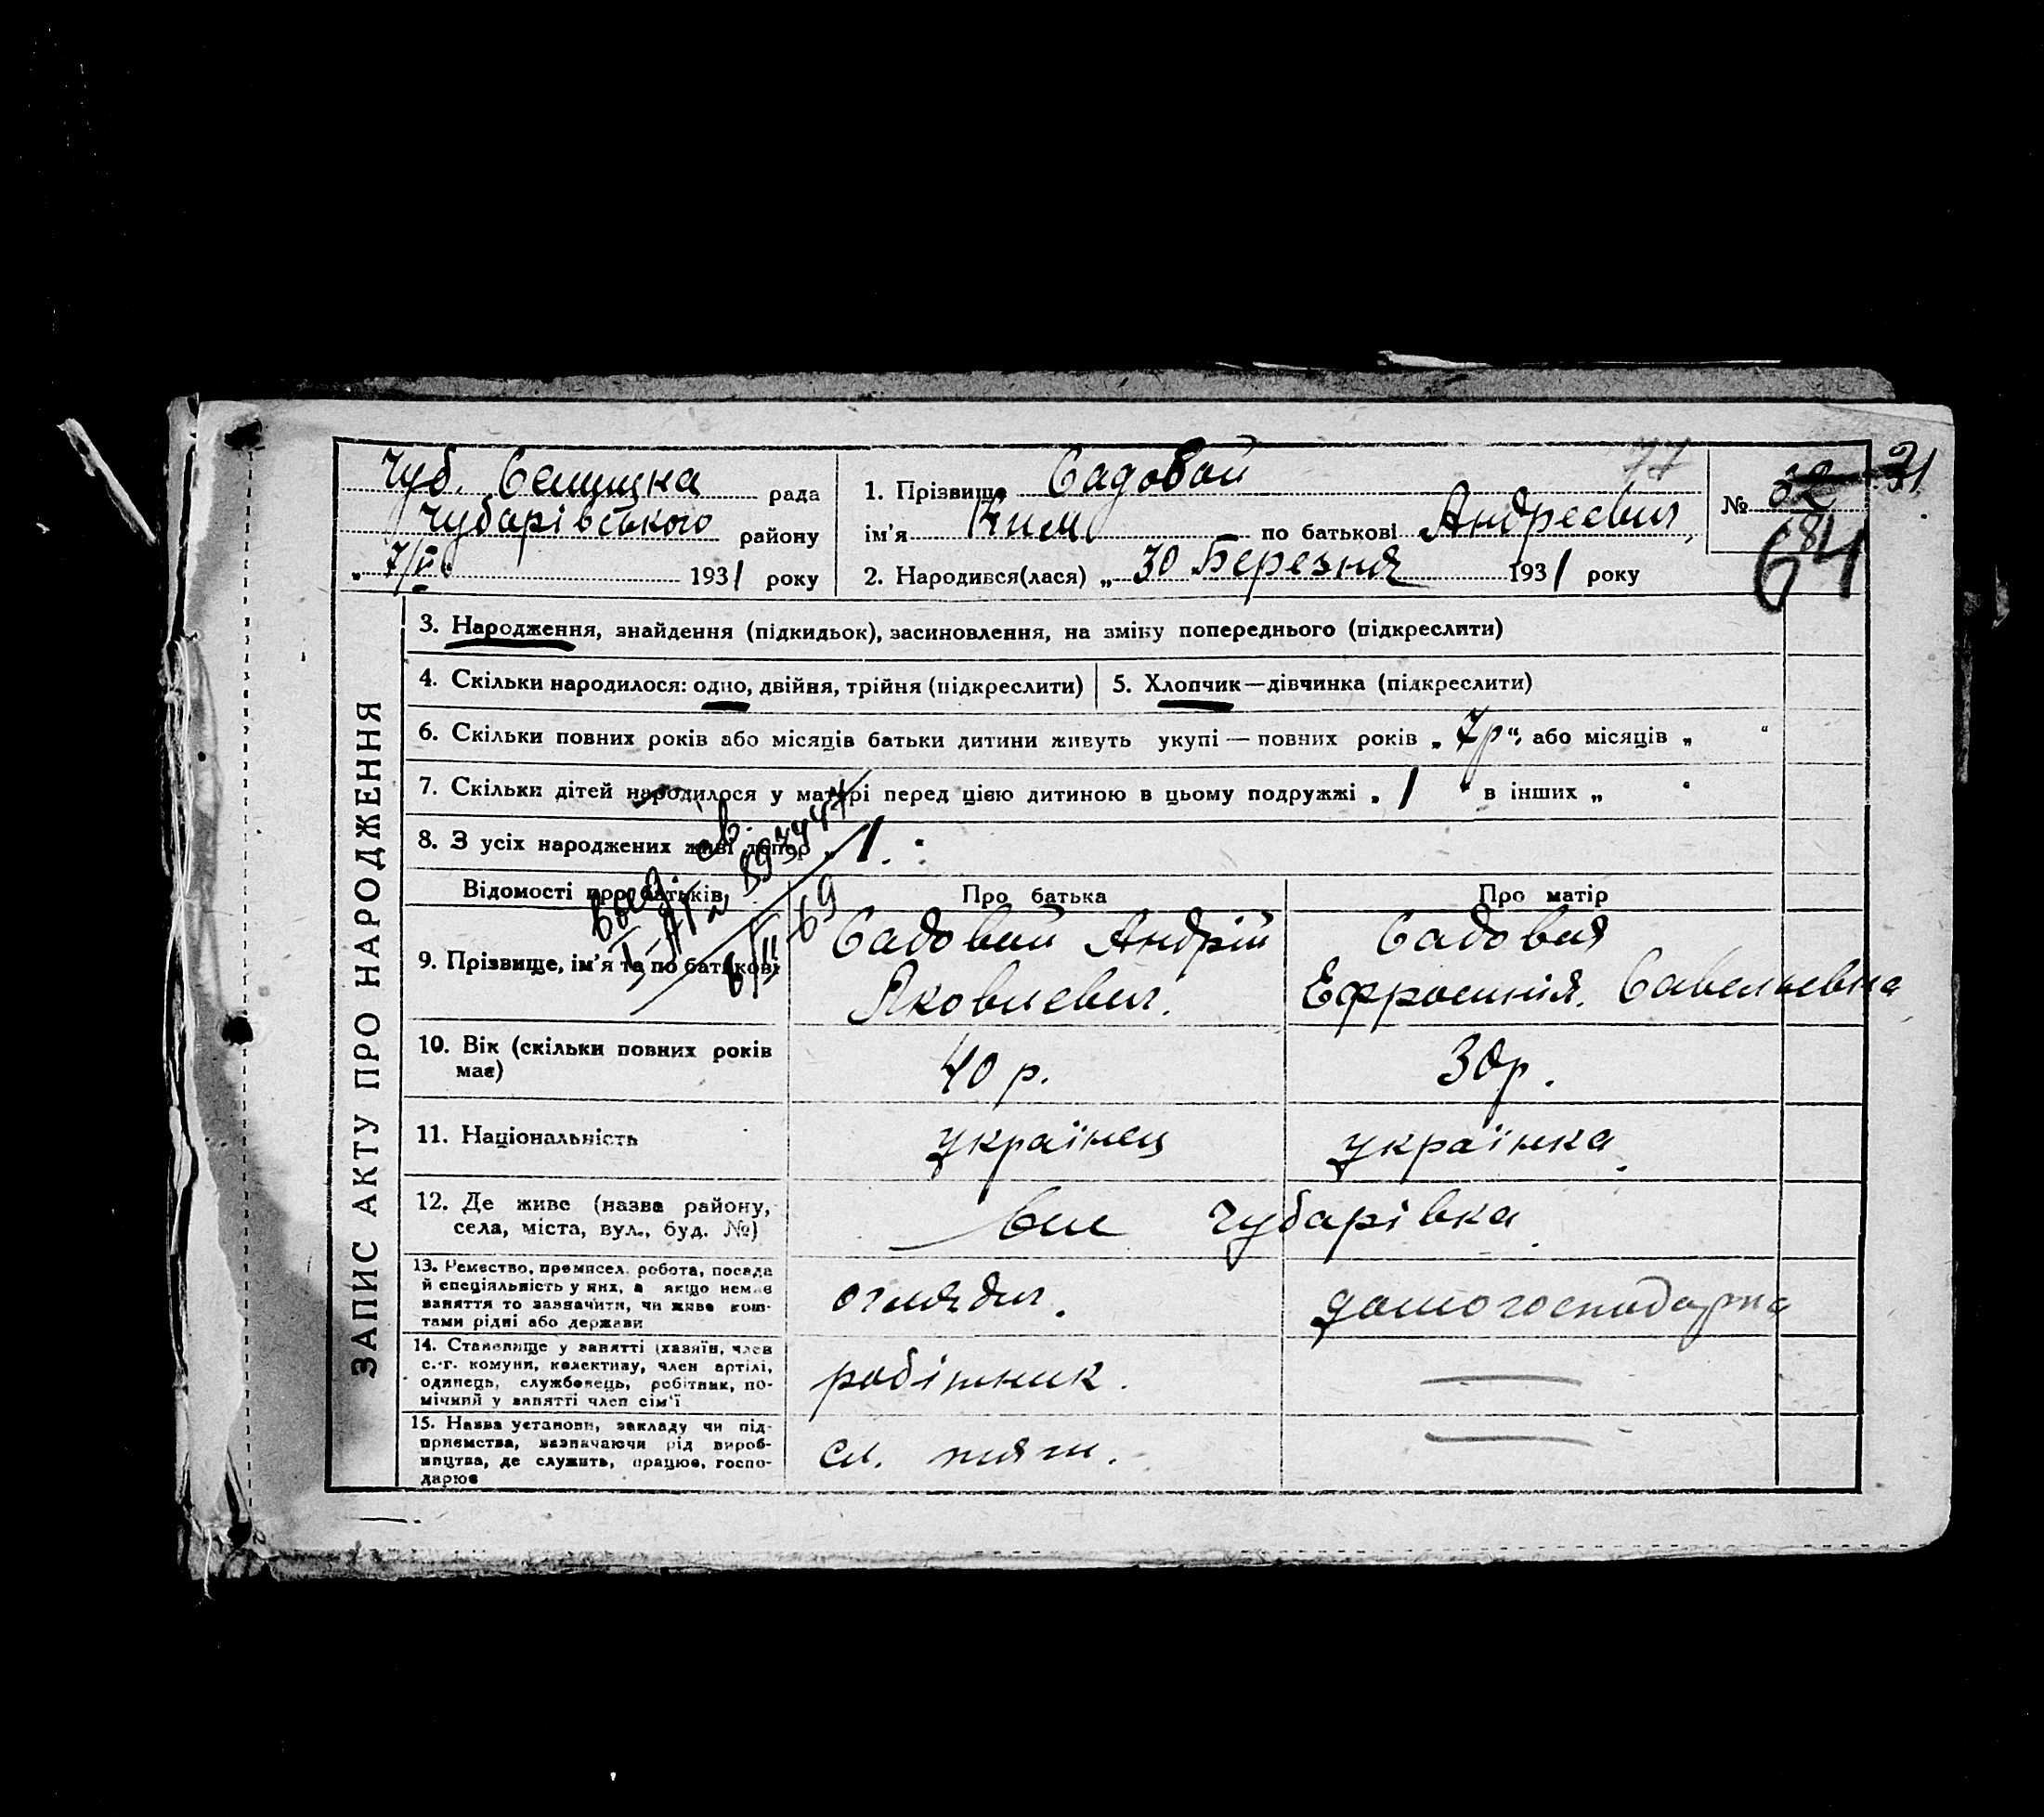 Чуб. Селищна рада
Чубарівського району
„ 7/IV 1931 року
1. Прізвище Садовой
ім'я Ким по батькові Андреевич
2. Народився(лася) „ 30 Березня 1931 року
77
№ 32 31
64
ЗАПИС АКТУ ПРО НАРОДЖЕННЯ
3. Народження, знайдення (підкидьок), засиновлення, на зміну попереднього (підкреслити)
4. Скільки народилося: одно, двійня, трійня (підкреслити)
5. Хлопчик—дівчинка (підкреслити)
6. Скільки повних років або місяців батьки дитини живуть укупі — повних років „ 7р “, або місяців „ “
7. Скільки дітей народилося у матері перед цією дитиною в цьому подружжі „ 1 “ в інших „ “
8. З усіх народжених живі дотепер „ 1. “
Відомості про батьків
Про батька
Про матір
9. Прізвище, ім'я та по батькові
Садовой Андрій
Яковлевич.
Садовая
Ефросинія. Савельевна
10. Вік (скільки повних років
має)
40 р.
30р.
11. Національність
українец
українка
12. Де живе (назва району,
села, міста, вул., буд. №)
Чубарівка
13. Ремество, промисел, робота, посада
й спеціяльність у них, а якщо немає
заняття то зазначити, чи живе кош-
тами рідні або держави
оглядач.
домогосподарка
14. Становище у занятті (хазяїн, член
с.-г. комуни, колективу, член артілі,
одинець, службовець, робітник, по-
мічний у занятті член сім'ї
робітник.
15. Назва установи, закладу чи під-
приємства, зазначаючи рід вироб-
ництва, де служить, працює, госпо-
дарює